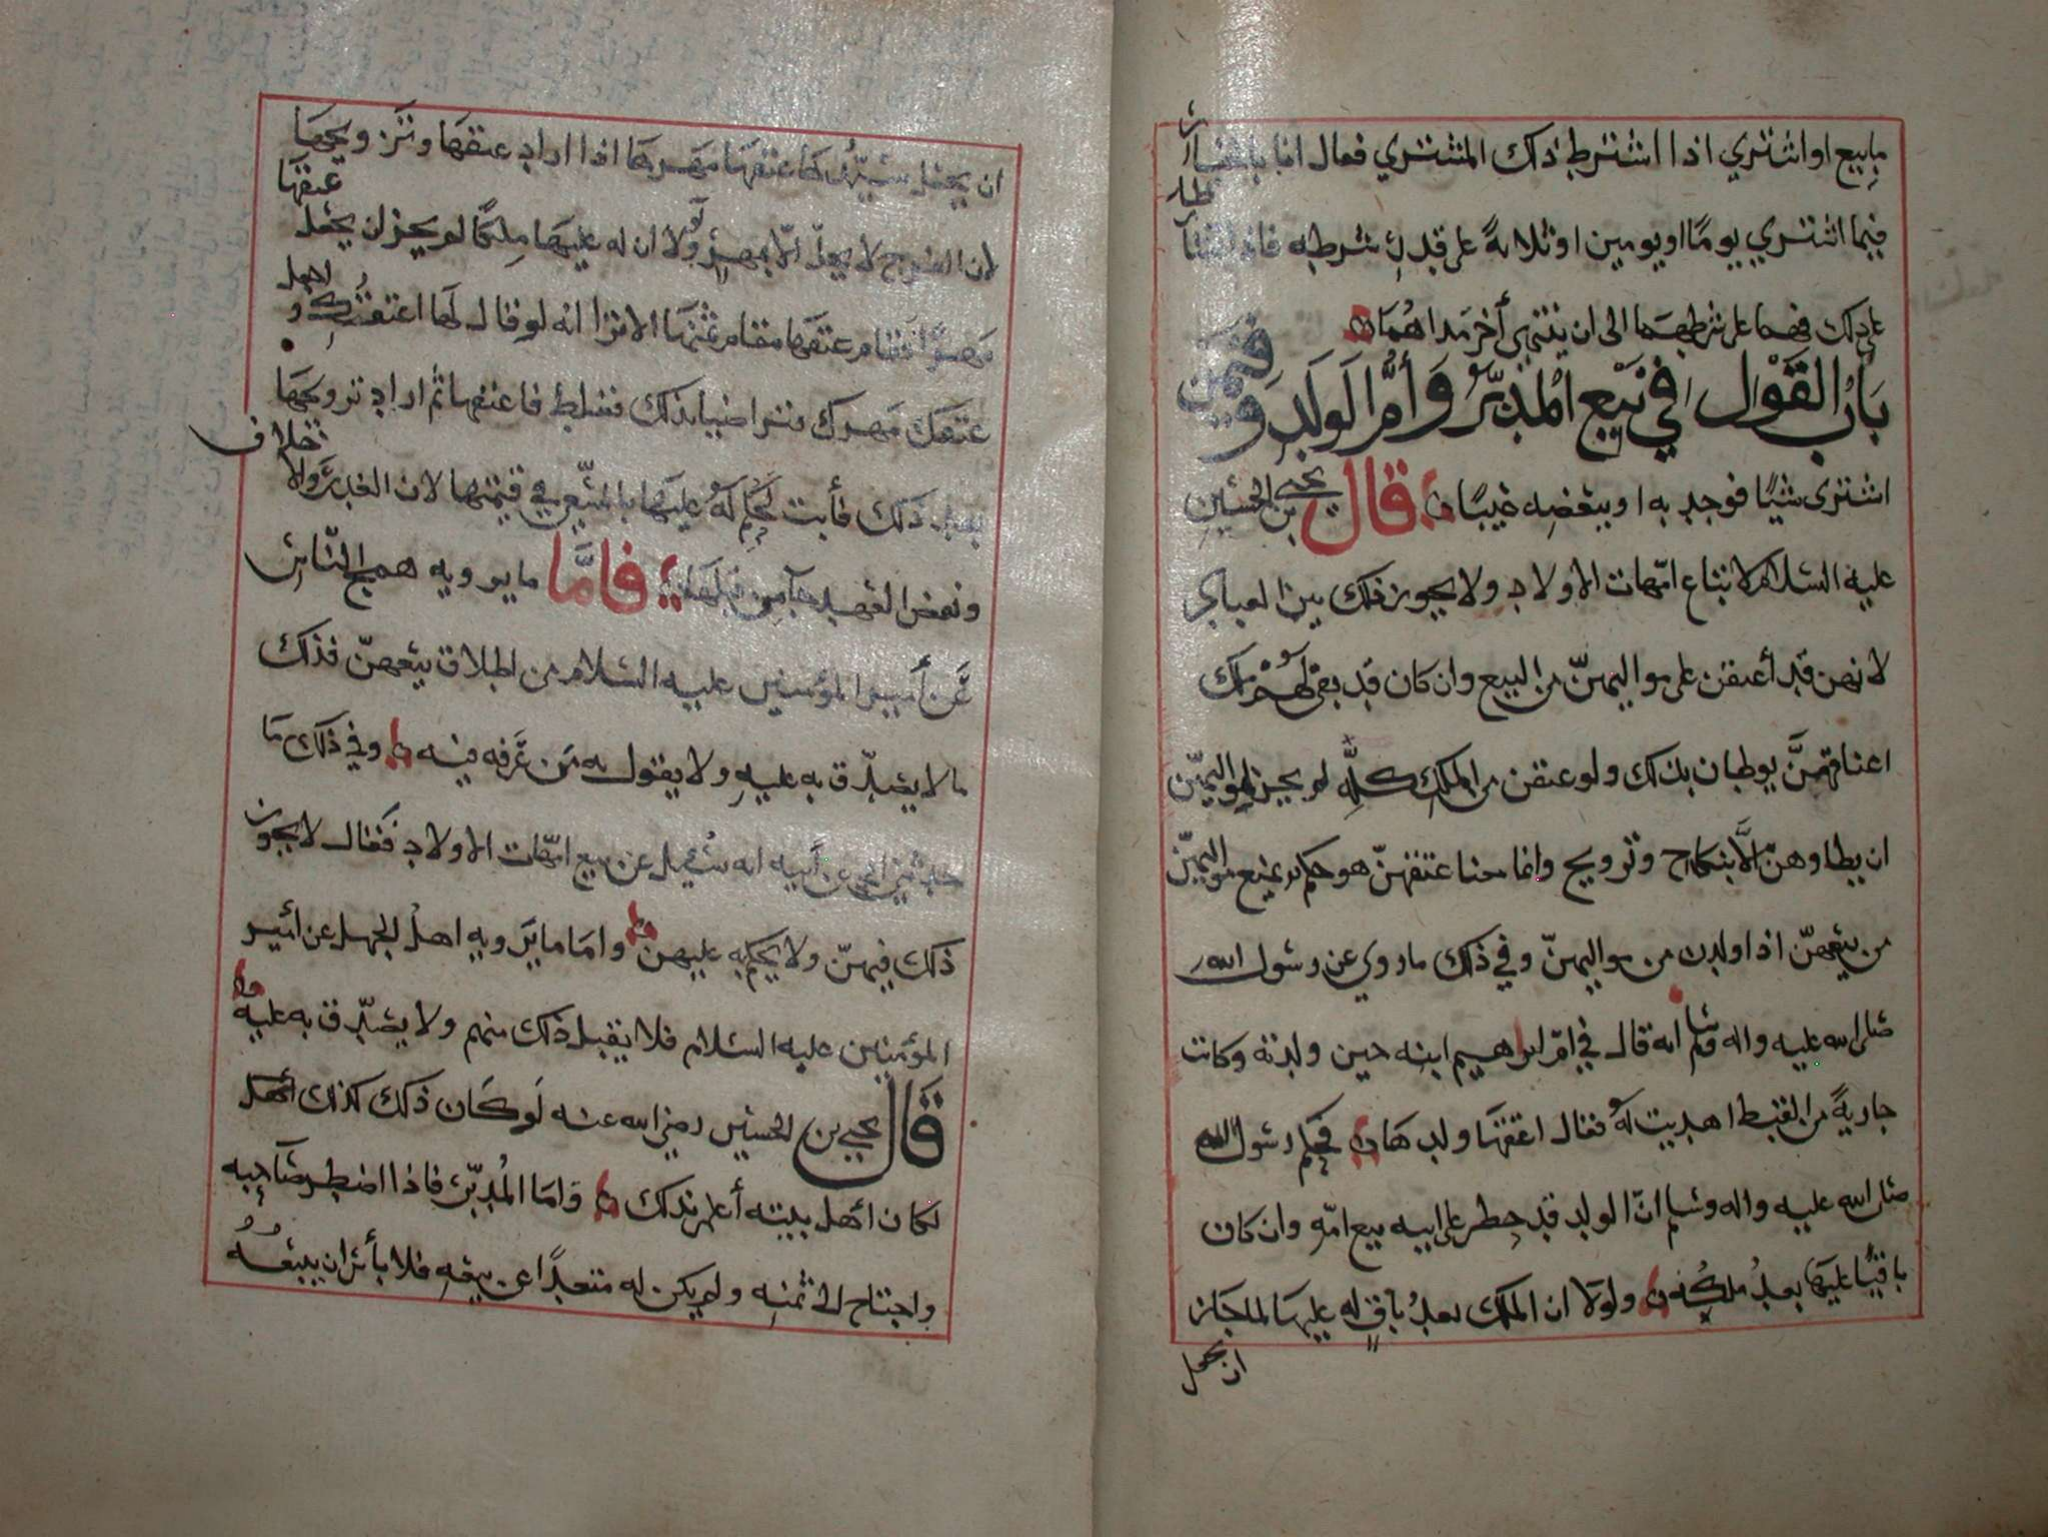 ما يبيع او اشتري اذا اشترط ذلك المشتري فقال انا بالخيار
فيما اشتري يوما او يومين او ثلاثة على قدر شرطه فاذا
على ذلك فهما على شرطهما الى ان ينتهي أخر مداهما
باب القول في بيع المدبر وأم الولد وفيمن
اشترى شيئا فوجد به او ببعضه عيبا قال يحيى بن الحسين
عليه السلام لا تباع امهات الاولاد ولا يجوز ذلك بين العباد
لانهن قد أعتقن على مواليهن من البيع وان كان قد بقي لهم ملك
اعناقهن يوطيان بذلك ولو عتقن من الملك كله لم يجز لمواليهن
ان يطاوهن الا بنكاح وتزويج وانما معنا عتقهن هو حكم يمنع مواليهن
من بيعهن اذا ولدن من مواليهن وفي ذلك ما روي عن رسول الله
صلى الله عليه واله وسلم انه قال في ام ابراهيم ابنه حين ولدته وكانت
جارية من القبط اهديت له فقال اعتقها ولدها فحكم رسول الله
صلى الله عليه واله وسلم ان الولد قد حظر على ابيه بيع امه وان كان
باقيا عليها بعد ملكه ولولا ان الملك بعد باق له عليها لما جاز
ان يجعل
ان يجعل عتقها مهرها اذا اراد عتقها وتزويجها
لان الفرج لا يحل الا بمهر ولولا ان له عليها ملكا لم يجز ان يجعل عتقها
مهرا فقام عتقها مقام ثمنها الا ترا انه لو قال لها اعتقتك و اجعل
عتقك مهرك فتراضيا بذلك فغلط فاعتقها ثم اراد تزويجها
بعد ذلك فأبت لحكم له عليها بالسعي في قيمتها لان الغدر ولا خلاف
ونقض العهد جآ من قبلها فاما ما يرويه همج الناس
عن أمير المؤمنين عليه السلام من اطلاق بيعهن فذلك
ما لا يصدق به عليه ولا يقول به من عرفه فيه وفي ذلك ما
حدثني ابي عن أبيه انه سئل عن بيع امهات الاولاد فقال لا يجوز
ذلك فيهن ولا يحكم به عليهن واما ما يرويه اهل الجهل عن امير
المؤمنين عليه السلام فلا يقبل ذلك منهم ولا يصدق به عليه
قال يحيى بن الحسين رضي الله عنه لو كان ذلك كذلك
لكان اهل بيته أعلم بذلك واما المدبر فاذا اضطر صاحبه
واحتاج الى ثمنه ولم يكن له متعدا عن بيعه فلا بأس ان يبيعه